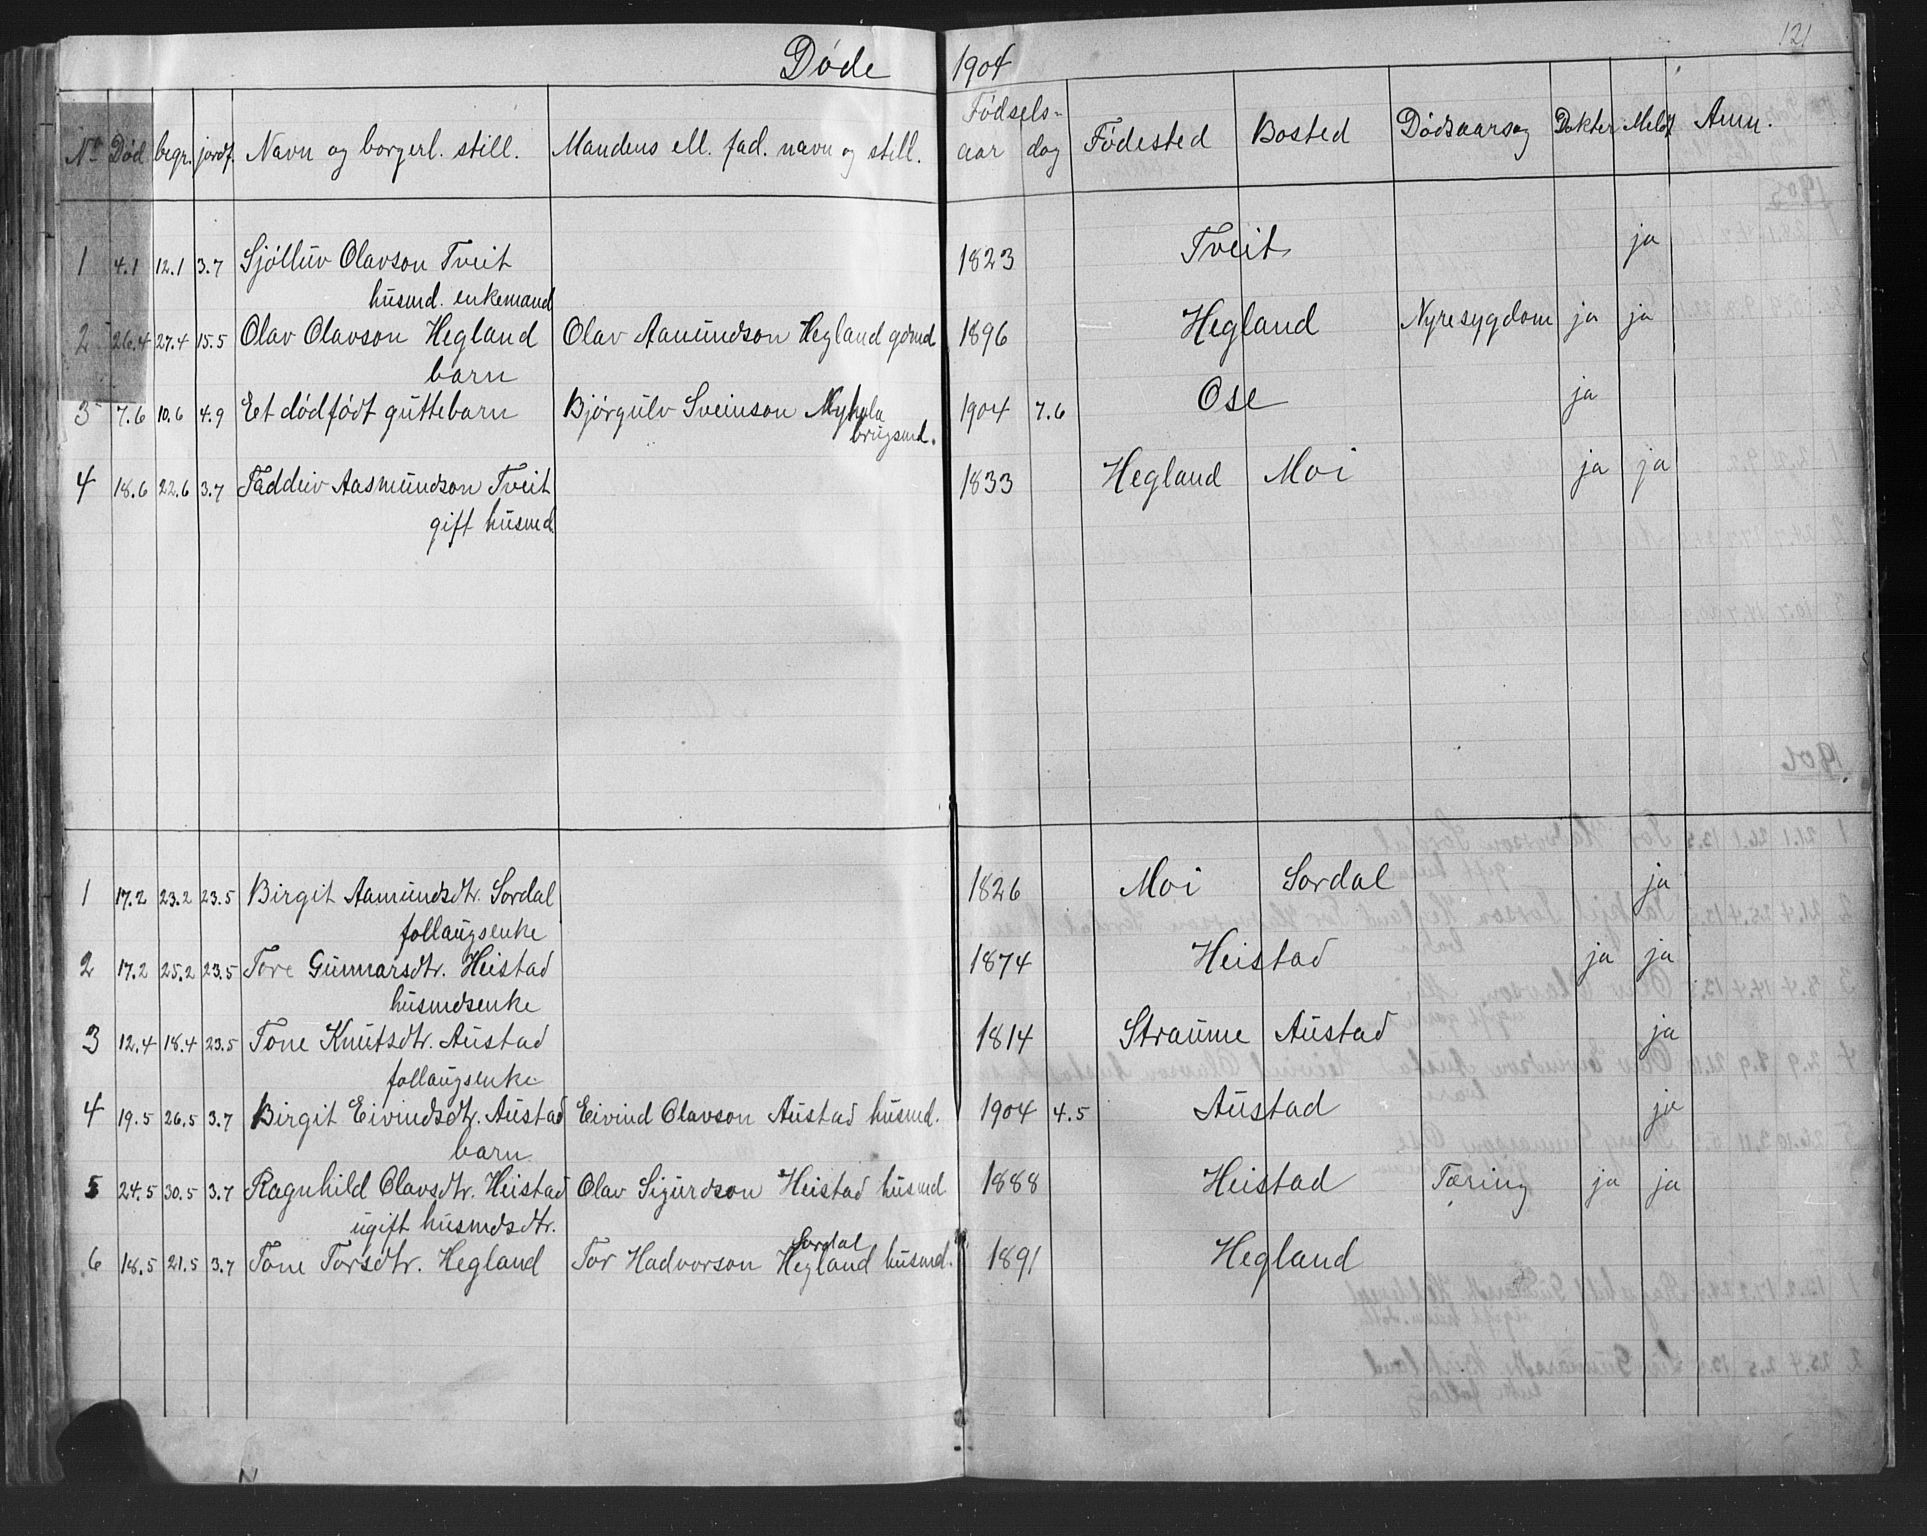 121
Døde 1904
No Død begr. jordf. Navn og borgerl. still. Mandens ell. fad. navn og still. Fødsels- aar dag Fødested Bosted Dødsaarsag Dokter Meldt Anm.
1 4.1 12.1 3.7 Sjølluv Olavson Tveit 1823 Tveit ja
husmd. enkemand
2 26.4 27.4 15.5 Olav Olavson Hegland Olav Aamundson Hegland gdmd. 1896 Hegland Nyresygdom ja ja
barn
3 7.6 10.6 4.9 Et dødfødt guttebarn Bjørgulv Sveinson 1904 7.6 Ose ja
brugsmd.
4 18.6 22.6 3.7 Taddeiv Aasmundson Tveit 1833 Hegland Moi ja ja
gift husmd.
1 17.2 23.2 23.5 Birgit Aamundsdtr. Sordal 1826 Moi Sordal ja
follaugsenke
2 17.2 25.2 23.5 Tore Gunnarsdtr. Heistad 1874 Heistad ja ja
husmdsenke
3 12.4 18.4 23.5 Tone Knutsdtr. Austad 1814 Straume Austad ja
follaugsenke
4 19.5 26.5 3.7 Birgit Eivindsdtr. Austad Eivind Olavson Austad husmd. 1904 4.5 Austad ja
barn
5 24.5 30.5 3.7 Ragnhild Olavsdtr. Heistad Olav Sigurdson Heistad husmd 1888 Heistad Tæring ja ja
ugift husmdsdtr.
Sordal
6 18.5 21.5 3.7 Tone Torsdtr. Hegland Tor Hadvorson Hegland husmd. 1891 Hegland